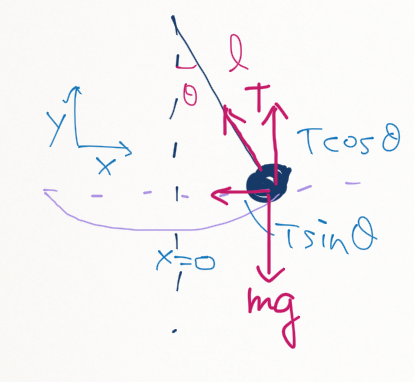 l
θ
T
y
x
Tcosθ
Tsinθ
x=0
mg